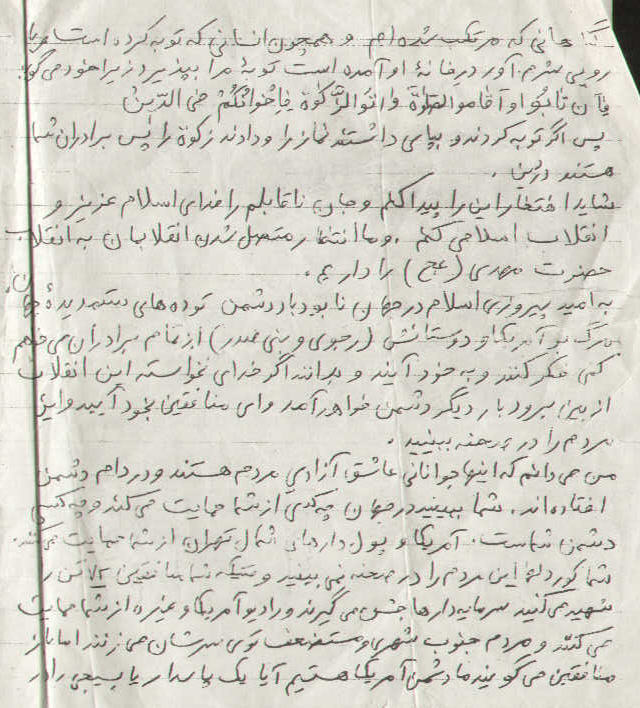 گناهانی که مرتکب شده‌ام و همچون انسانی که توبه کرده است و با
رویی شرم آور درخانهٔ او آمده است توبهٔ مرا بپذیرد زیرا خود می گوید
فان تابُوا و آقاموا الصلوةَ وَ اتوُا الزَّکوةَ فِاخْوانُکُمْ فی الدّینْ
پس اگر توبه کردند و بپای داشتند نماز را و دادند زکوة را پس برادران شما
هستند در دین .
شاید افتخار این را پیدا کنم و جان ناقابلم را فدای اسلام عزیز و
انقلاب اسلامی کنم . و ما انتظار متصل شدن انقلابمان به انقلاب
حضرت مهدی (عج) را داریم .
به امید پیروزی اسلام در جهان نابود باد دشمن توده های ستمدیدهٔ جهان
مرگ بر آمریکا و دوستانش (رجوی و بنی صدر) از تمام برادران می خواهم
کمی فکر کنند و به خود آیند و بدانند اگر خدای نخواسته این انقلاب
از بین برود بار دیگر دشمن خواهد آمد و ای منافقین بخود آیید و این
مردم را در صحنه ببینید .
من می دانم که اینها جوانانی عاشق آزادی مردم هستند و در دام دشمن
افتاده اند. شما ببینید در جهان چه کسی از شما حمایت می کند و چه کسی
دشمن شماست. آمریکا و پول دارهای شمال تهران از شما حمایت می کنند.
شما کوردلها این مردم را در صحنه نمی بینید وقتیکه شما منافقین ۷۲ تن را
شهید می کنید سرمایه دارها جشن می گیرند و رادیو آمریکا و غیره از شما حمایت
می کنند و مردم جنوب شهری و مستضعف توی سرشان می زنند اما باز
منافقین می گویند ما دشمن آمریکا هستیم آیا یک پاسدار یا بسیجی را در